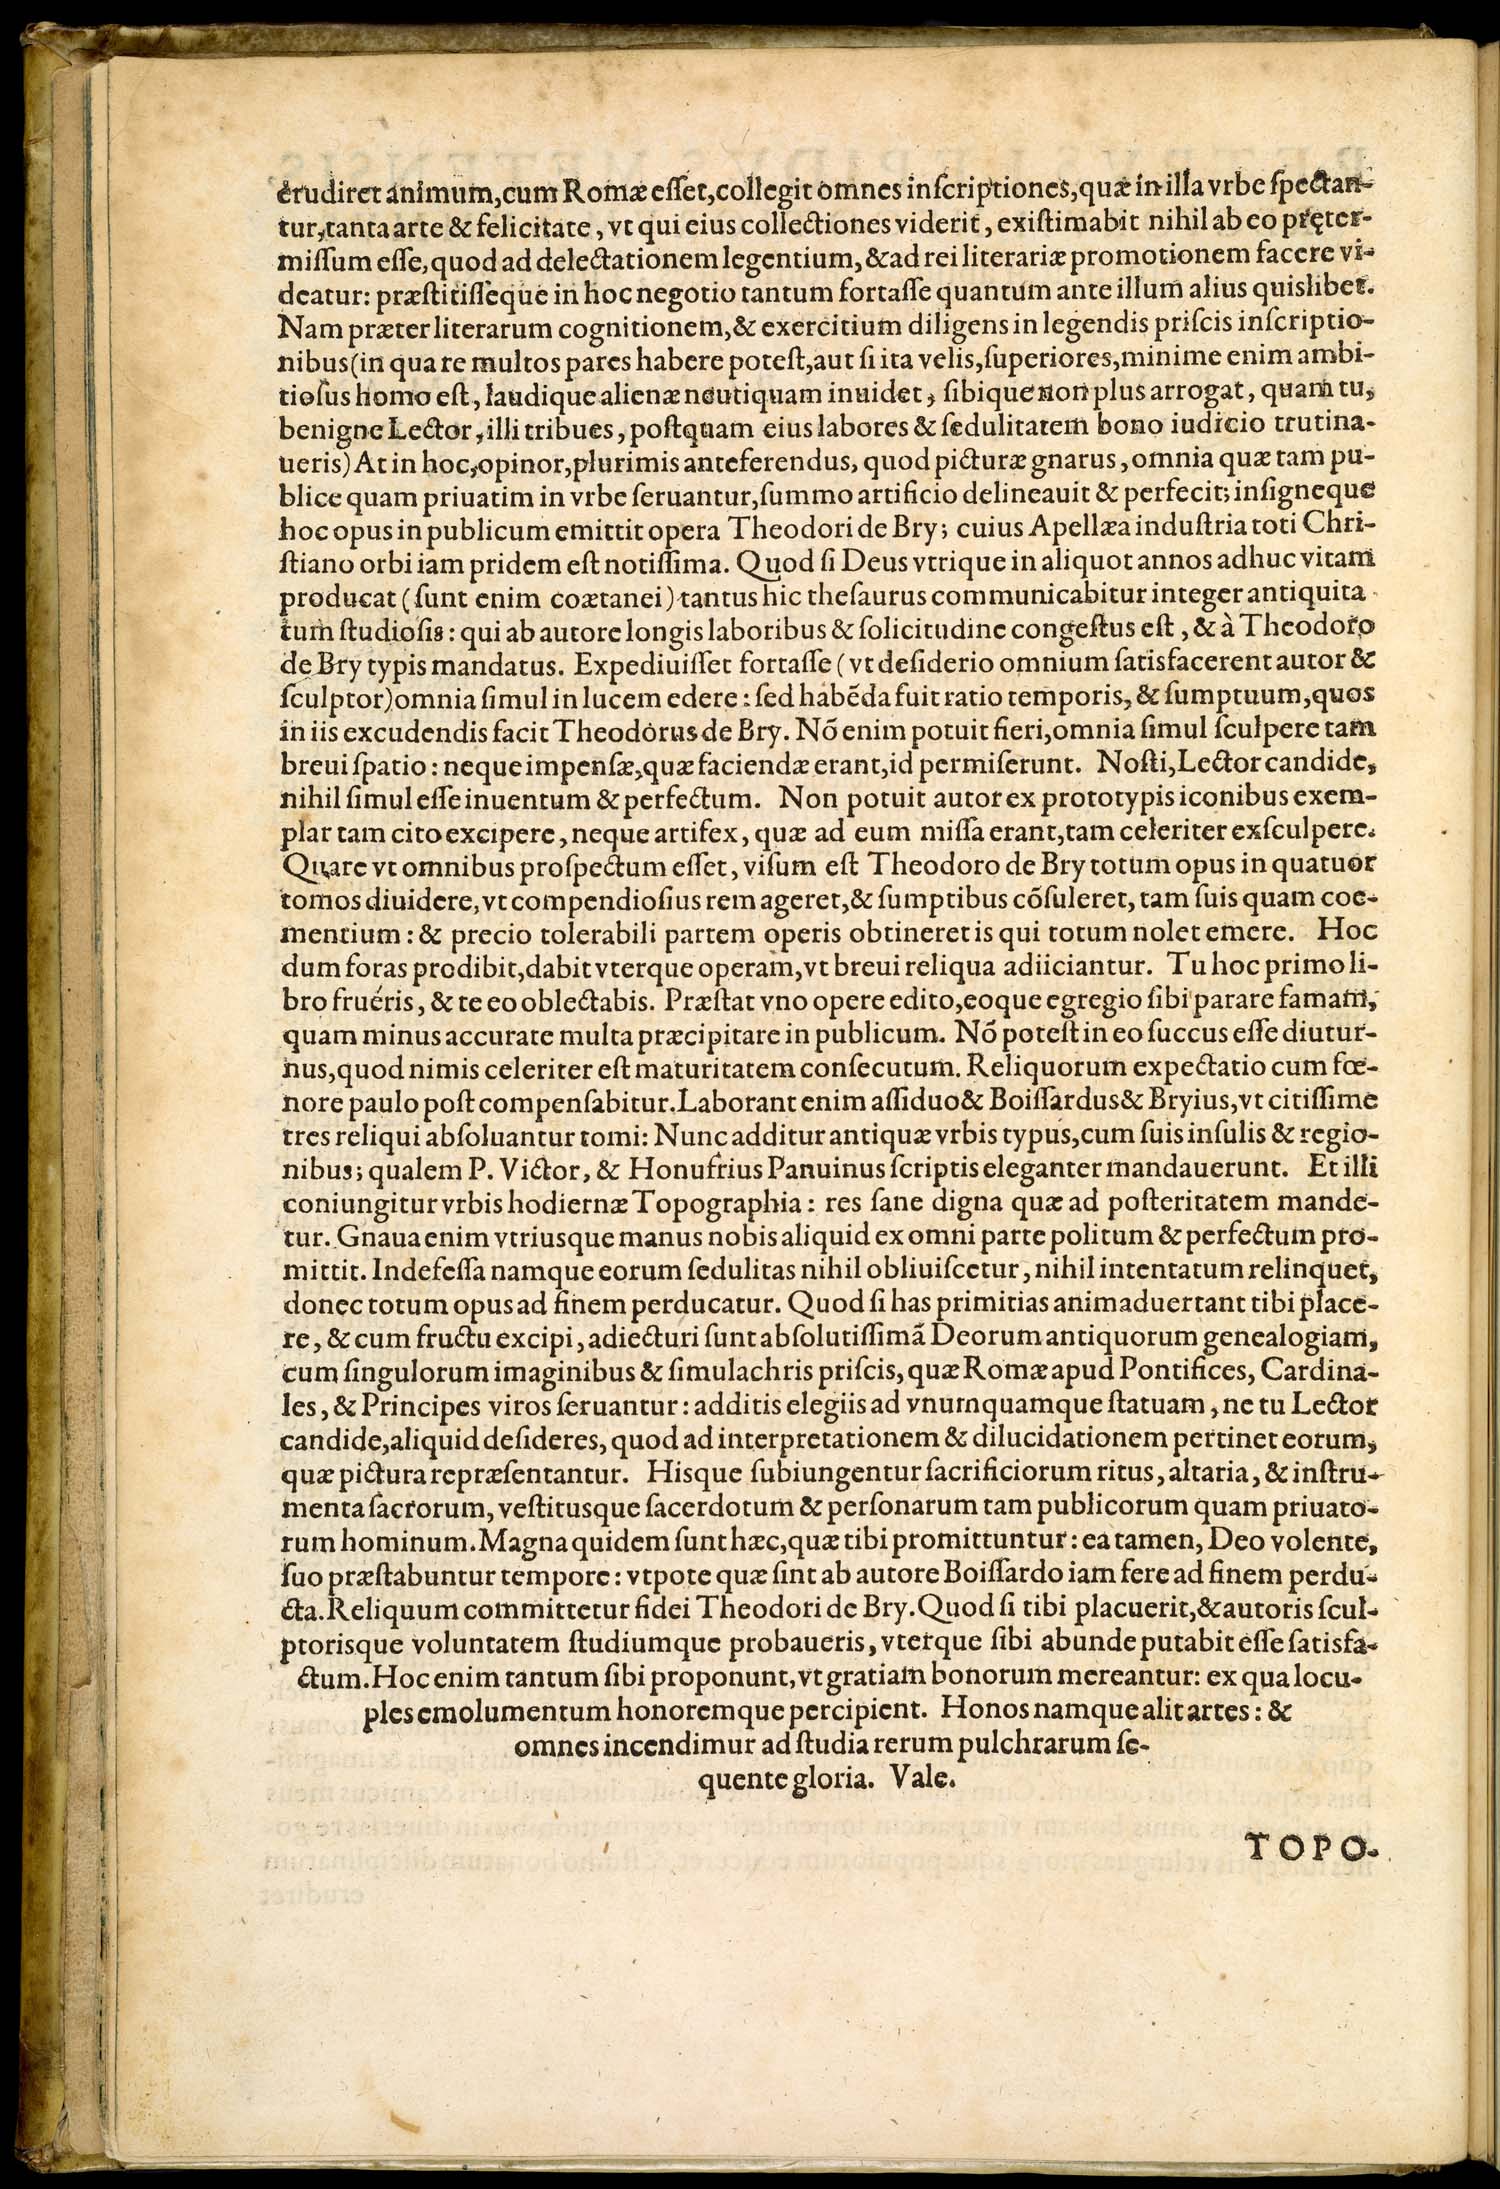 erudiret animum, cum Romæ eſſet, collegit omnes inſcriptiones, quæ in illa vrbe ſpectan-
tur, tanta arte & felicitate, vt qui eius collectiones viderit, exiſtimabit nihil ab eo pręter-
miſſum eſſe, quod ad delectationem legentium, & ad rei literariæ promotionem facere vi-
deatur: præſtitiſſeque in hoc negotio tantum fortaſſe quantum ante illum alius quislibet.
Nam præter literarum cognitionem, & exercitium diligens in legendis priſcis inſcriptio-
nibus (in qua re multos pares habere poteſt, aut ſi ita velis, ſuperiores, minime enim ambi-
tioſus homo eſt, laudique alienæ neutiquam inuidet, ſibique non plus arrogat, quam tu,
benigne Lector, illi tribues, poſtquam eius labores & ſedulitatem bono iudicio trutina-
ueris) At in hoc, opinor, plurimis anteferendus, quod picturæ gnarus, omnia quæ tam pu-
blice quam priuatim in vrbe ſeruantur, ſummo artificio delineauit & perfecit; inſigneque
hoc opus in publicum emittit opera Theodori de Bry; cuius Apellæa induſtria toti Chri-
ſtiano orbi iam pridem eſt notiſſima. Quod ſi Deus vtrique in aliquot annos adhuc vitam
producat (ſunt enim coætanei) tantus hic theſaurus communicabitur integer antiquita-
tum ſtudioſis: qui ab autore longis laboribus & ſolicitudine congeſtus eſt, & à Theodoro
de Bry typis mandatus. Expediuiſſet fortaſſe (vt deſiderio omnium ſatisfacerent autor &
ſculptor) omnia ſimul in lucem edere: ſed habēda fuit ratio temporis, & ſumptuum, quos
in iis excudendis facit Theodorus de Bry. Nō enim potuit fieri, omnia ſimul ſculpere tam
breui ſpatio: neque impenſæ, quæ faciendæ erant, id permiſerunt. Noſti, Lector candide,
nihil ſimul eſſe inuentum & perfectum. Non potuit autor ex prototypis iconibus exem-
plar tam cito excipere, neque artifex, quæ ad eum miſſa erant, tam celeriter exſculpere.
Quare vt omnibus proſpectum eſſet, viſum eſt Theodoro de Bry totum opus in quatuor
tomos diuidere, vt compendioſius rem ageret, & ſumptibus cōſuleret, tam ſuis quam coe-
mentium: & precio tolerabili partem operis obtineret is qui totum nolet emere. Hoc
dum foras prodibit, dabit vterque operam, vt breui reliqua adiiciantur. Tu hoc primo li-
bro fruéris, & te eo oblectabis. Præſtat vno opere edito, eoque egregio ſibi parare famam,
quam minus accurate multa præcipitare in publicum. Nō poteſt in eo ſuccus eſſe diutur-
nus, quod nimis celeriter eſt maturitatem conſecutum. Reliquorum expectatio cum fœ-
nore paulo poſt compenſabitur. Laborant enim aſſiduo & Boiſſardus & Bryius, vt citiſſime
tres reliqui abſoluantur tomi: Nunc additur antiquæ vrbis typus, cum ſuis inſulis & regio-
nibus; qualem P. Victor, & Honufrius Panuinus ſcriptis eleganter mandauerunt. Et illi
coniungitur vrbis hodiernæ Topographia: res ſane digna quæ ad poſteritatem mande-
tur. Gnaua enim vtriusque manus nobis aliquid ex omni parte politum & perfectum pro-
mittit. Indefeſſa namque eorum ſedulitas nihil obliuiſcetur, nihil intentatum relinquet,
donec totum opus ad finem perducatur. Quod ſi has primitias animaduertant tibi place-
re, & cum fructu excipi, adiecturi ſunt abſolutiſſimā Deorum antiquorum genealogiam,
cum ſingulorum imaginibus & ſimulachris priſcis, quæ Romæ apud Pontifices, Cardina-
les, & Principes viros ſeruantur: additis elegiis ad vnumquamque ſtatuam, ne tu Lector
candide, aliquid deſideres, quod ad interpretationem & dilucidationem pertinet eorum,
quæ pictura repræſentantur. Hisque ſubiungentur ſacrificiorum ritus, altaria, & inſtru-
menta ſacrorum, veſtitusque ſacerdotum & perſonarum tam publicorum quam priuato-
rum hominum. Magna quidem ſunt hæc, quæ tibi promittuntur: ea tamen, Deo volente,
ſuo præſtabuntur tempore: vtpote quæ ſint ab autore Boiſſardo iam fere ad finem perdu-
cta. Reliquum committetur fidei Theodori de Bry. Quod ſi tibi placuerit, & autoris ſcul-
ptorisque voluntatem ſtudiumque probaueris, vterque ſibi abunde putabit eſſe ſatisfa-
ctum. Hoc enim tantum ſibi proponunt, vt gratiam bonorum mereantur: ex qua locu-
ples emolumentum honoremque percipient. Honos namque alit artes: &
omnes incendimur ad ſtudia rerum pulchrarum ſe-
quente gloria. Vale.
TOPO-